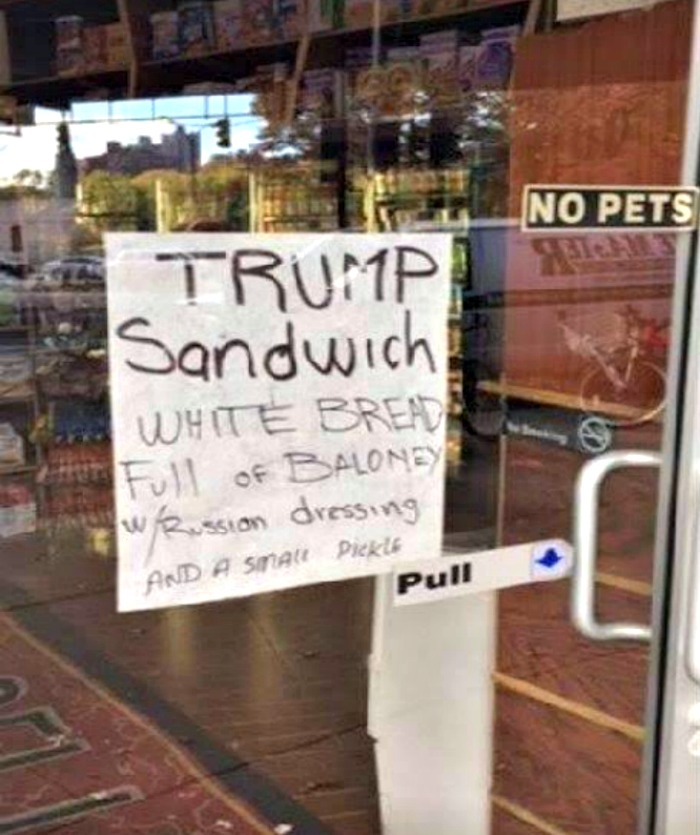 NO PETS
TRUMP
Sandwich
WHITE BREAD
Full OF BALONEY
w/Russian dressing
AND A SMALL PICKLE
No Smoking
Pull